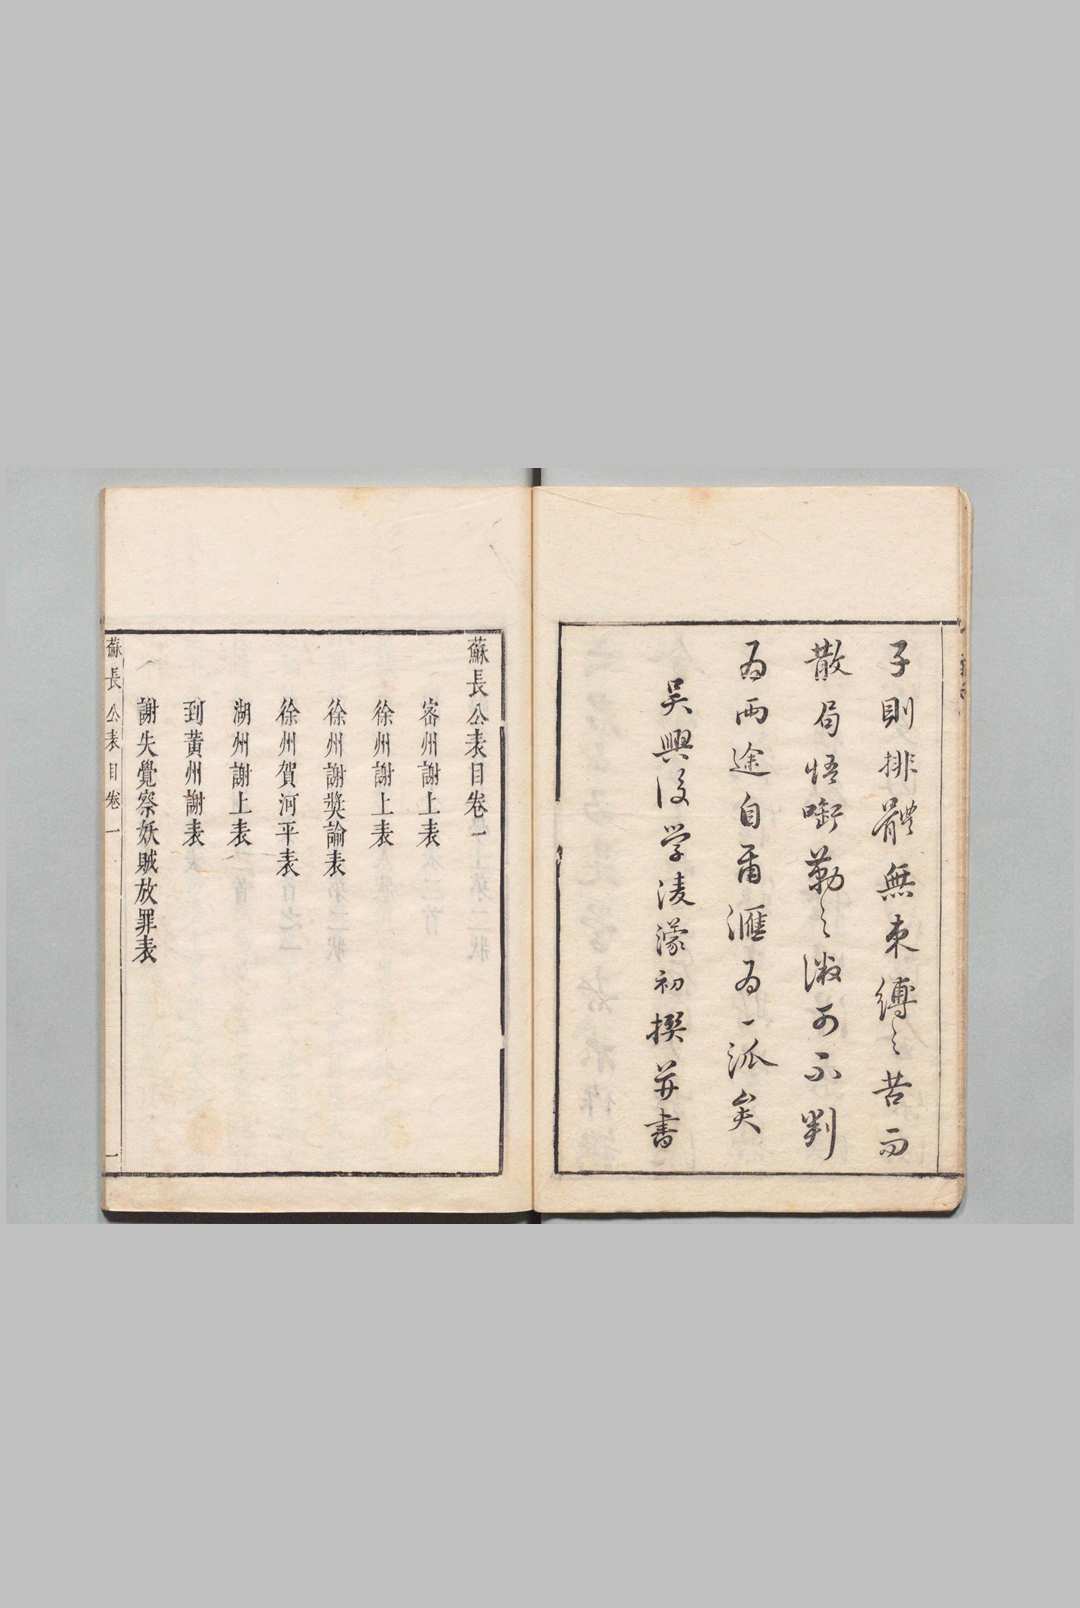 子則排體無束縛之苦而
散局悟銜勒之湥可不判
為兩途自爾滙為一派矣
吳興後学凌濛初撰并書
蘇長公表目卷一
密州謝上表
徐州謝上表
徐州謝奬諭表
徐州賀河平表
湖州謝上表
到黃州謝表
謝失覺察妖賊放罪表
蘇長公表目卷一
一